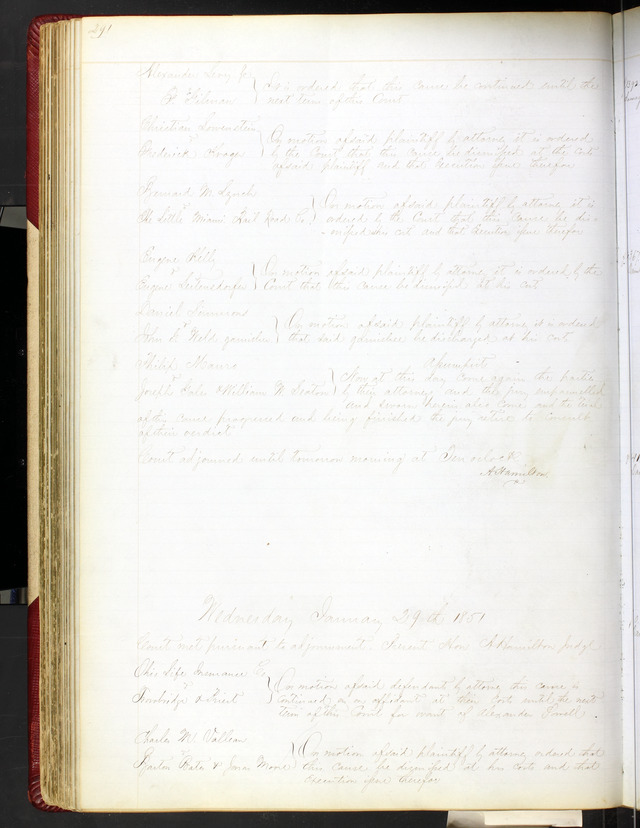 291
Alexander Leroy Jr
vs } It is ordered that this cause be continued until the
next term of this Court
Christian Lowenstein
vs } On motion of said plaintiff by attorney it is ordered
Frederick Krage by the Court that this cause be dismissed at the cost
of said plaintiff and that Execution issue therefor
Bernard M Lynch
vs } On motion of said plaintiff by attorney it is
The Little Miami Rail Road Co ordered by the Court that this cause be dis
missed at his cost and that Execution issue therefor
Eugene Kelly
vs } On motion of said plaintiff by attorney it is ordered by the
Eugene Leitensdorfer Court that this cause be dismissed at his cost
Daniel Simmons
vs } On motion of said plaintiff by attorney it is ordered
John Weld garnishee that said garnishee be discharged at his cost
Philip Munro Assumpsit
vs } Now at this day come again the parties
Joseph Gales & William W Seaton by their attorneys and the jury empannelled
and sworn herein also come and the trial
of this cause progressed and being finished the jury retire to consider
of their verdict
Court adjourned until tomorrow morning at Ten o'clock
A Hamilton
Wednesday January 29th 1851
Court met pursuant to adjournment. Present Hon A Hamilton Judge
Ohio Life Insurance Co
vs } On motion of said defendant by attorney this cause is
Trowbridge & continued on an affidavit at their cost until the next
term of this Court for want of Alexander
Charles M Valleau
vs } On motion of said plaintiff by attorney ordered that
Barton Bates & James Moore this cause be dismissed at his costs and that
Execution issue therefor